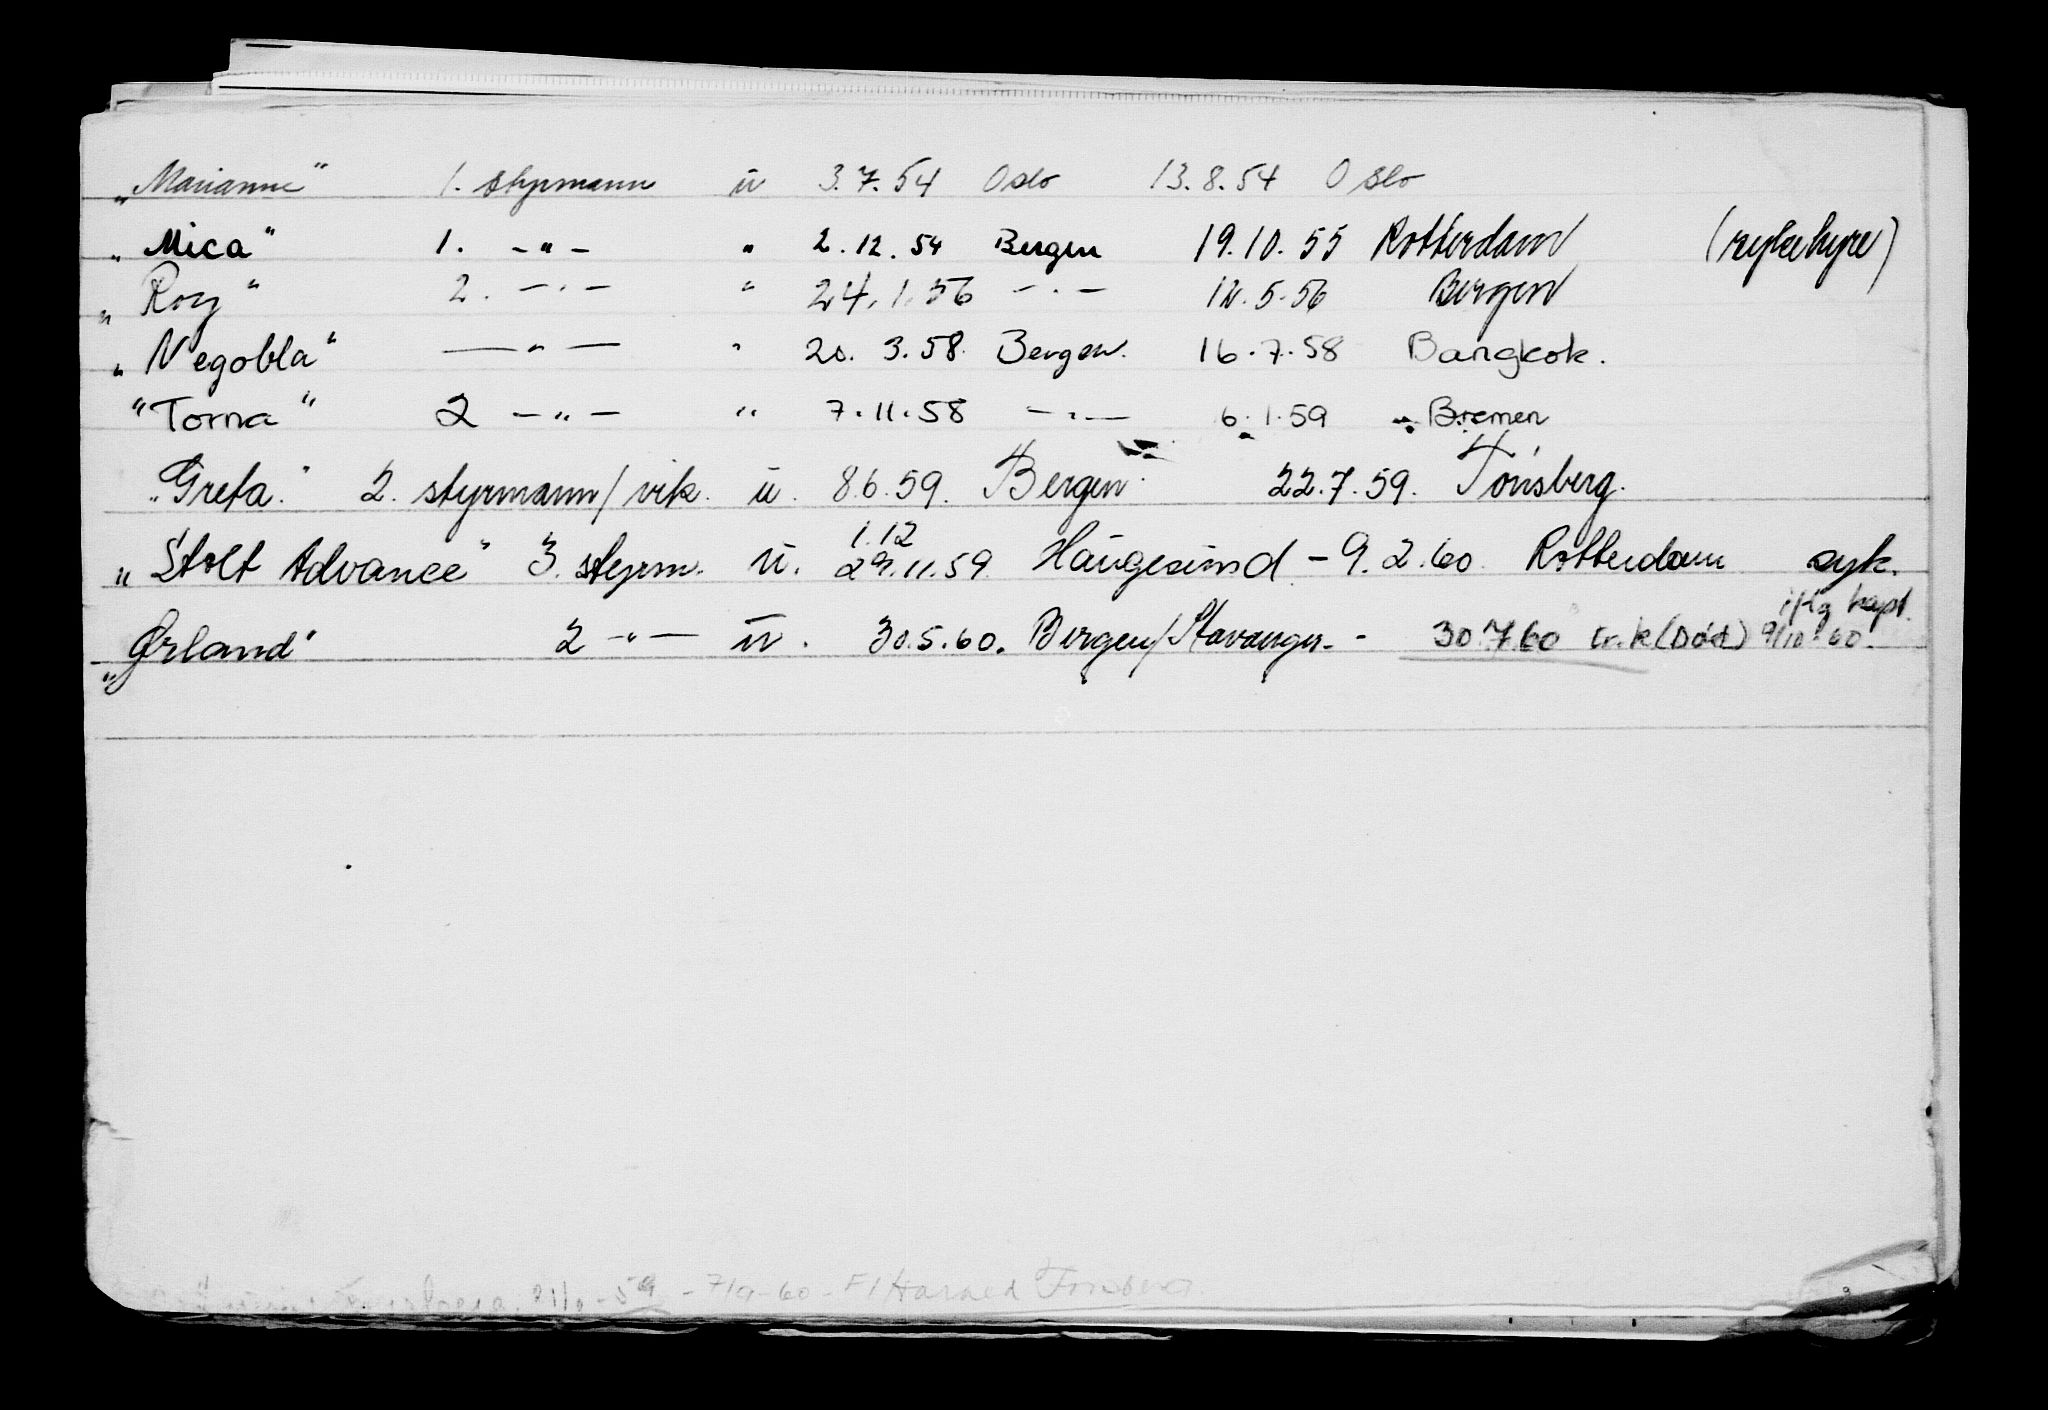 „Marianne“ 1. styrmann u 3.7.54 Oslo 13.8.54 Oslo
„Mica“ 1. -„- „ 2.12.54 Bergen 19.10.55 Rotterdam (sykehyre)
„Roy“ 2. -„- „ 24.1.56 -„- 12.5.56 Bergen
„Negobla“ -„- „ 20.3.58. Bergen. 16.7.58 Bangkok.
"Torna" 2 -„- „ 7.11.58 -„- 6.1.59 Bremen
„Greta.“ 2. styrmann/vik. u. 8.6.59. Bergen. 22.7.59. Tønsberg.
1.12
„Stolt Advance“ 3. styrm. u. 29.11.59. Haugesund - 9.2.60. Rotterdam syk.
i flg kapt.
„Ørland“ 2 -„- u. 30.5.60. Bergen/Stavanger. - 30.7.60 tr.k (Død) 9/10-60.
59 - 7/9-60 - F/ Harald